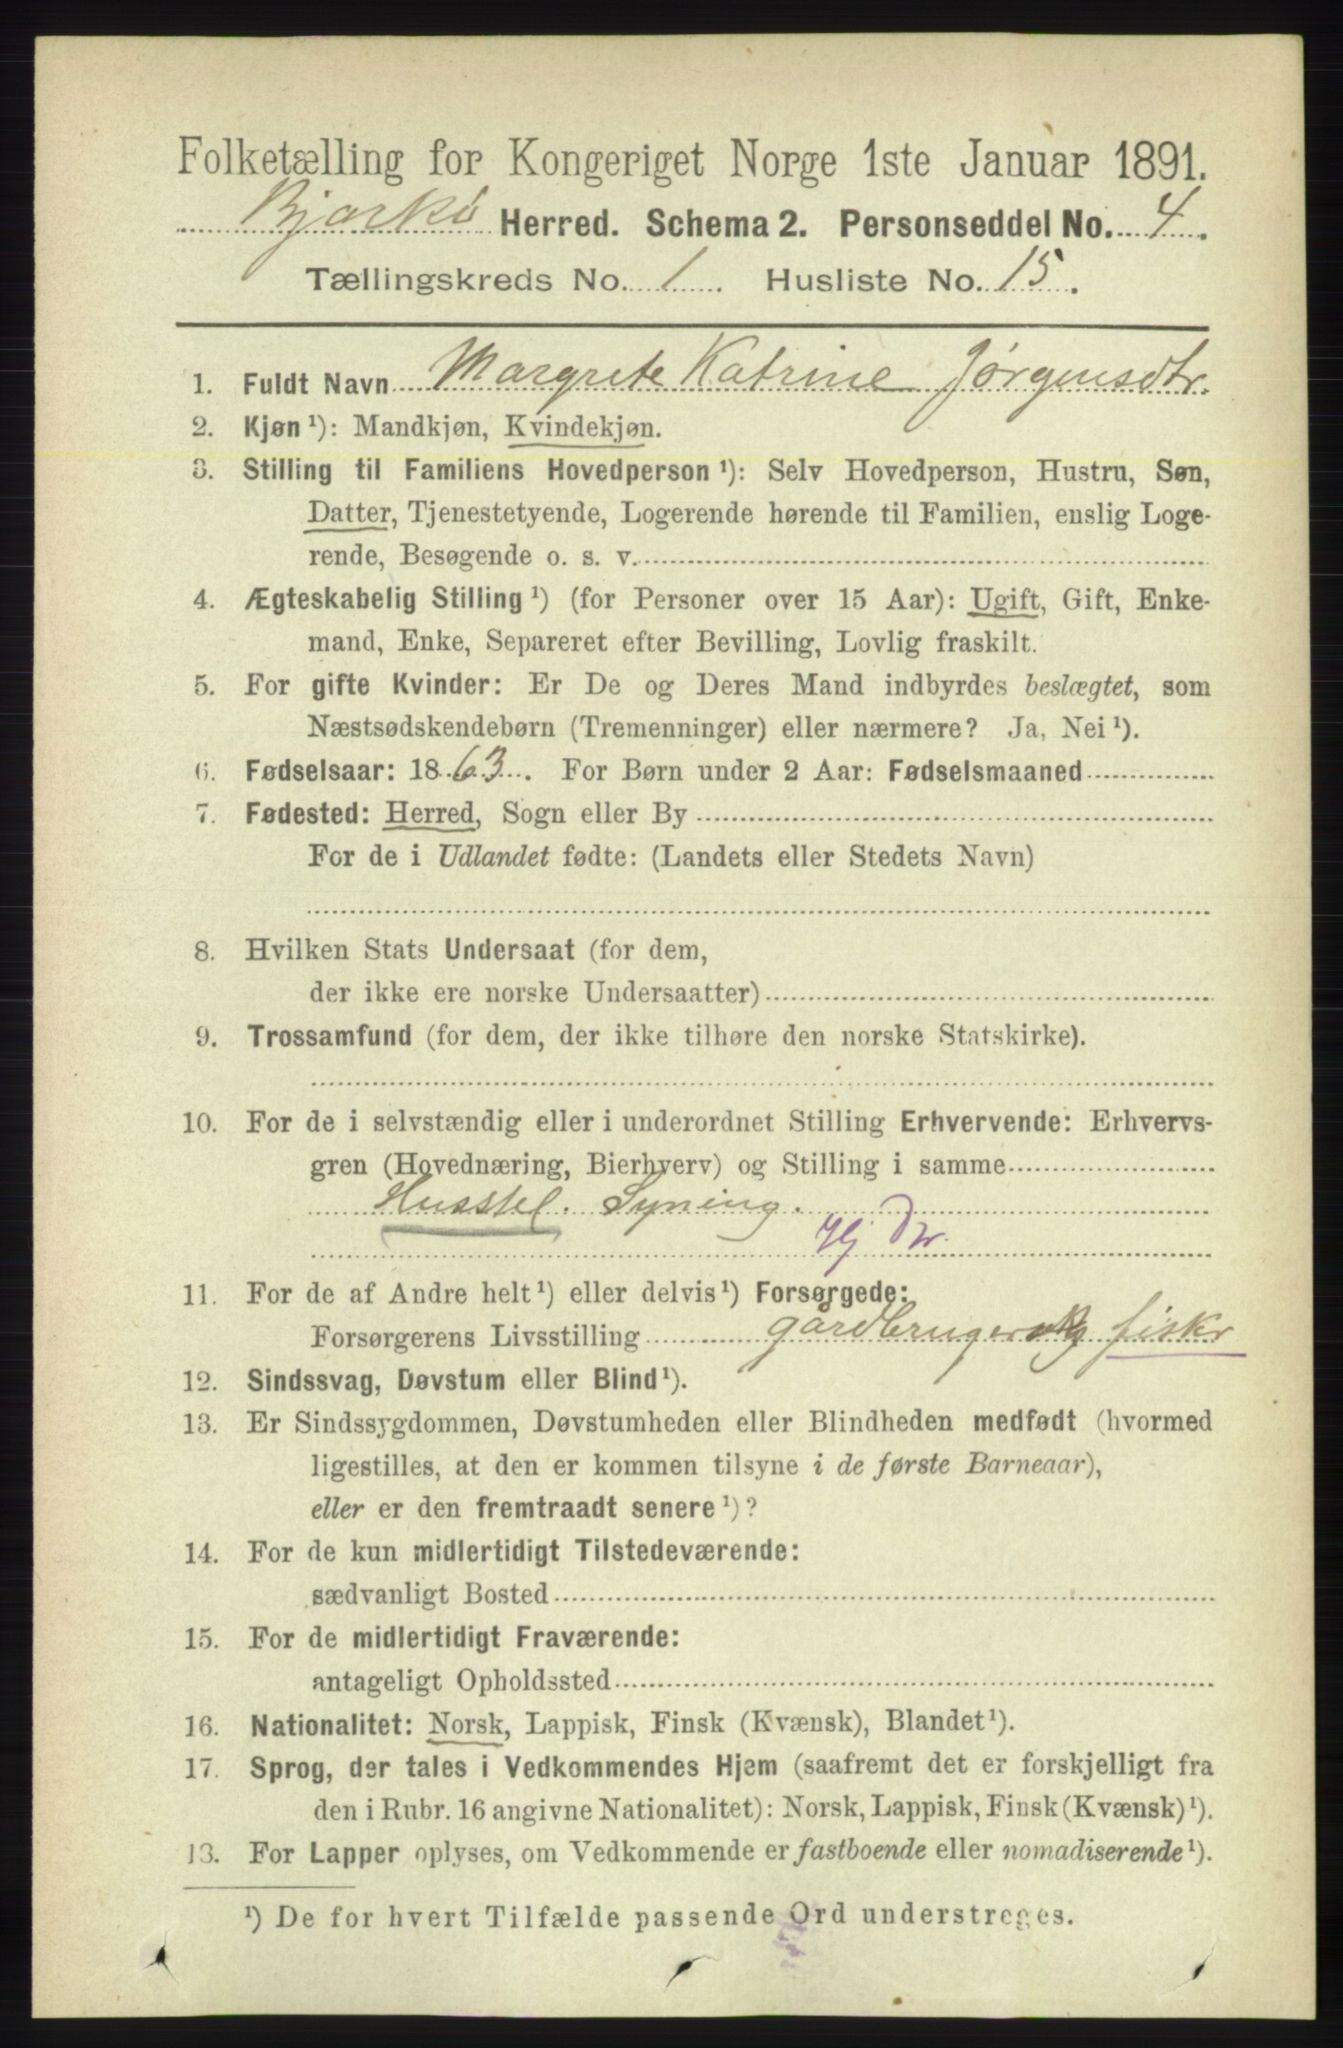 Folketælling for Kongeriget Norge 1ste Januar 1891.
Bjarkö Herred. Schema 2. Personseddel No. 4.
Tællingskreds No. 1. Husliste No. 15.
1. Fuldt Navn Margrete Katrine Jørgensdtr.
2. Kjøn ¹): Mandkjøn, Kvindekjøn.
3. Stilling til Familiens Hovedperson ¹): Selv Hovedperson, Hustru, Søn,
Datter, Tjenestetyende, Logerende hørende til Familien, enslig Loge-
rende, Besøgende o. s. v.
4. Ægteskabelig Stilling ¹) (for Personer over 15 Aar): Ugift, Gift, Enke-
mand, Enke, Separeret efter Bevilling, Lovlig fraskilt.
5. For gifte Kvinder: Er De og Deres Mand indbyrdes beslægtet, som
Næstsødskendebørn (Tremenninger) eller nærmere? Ja, Nei ¹).
6. Fødselsaar: 1863. For Børn under 2 Aar: Fødselsmaaned
7. Fødested: Herred, Sogn eller By
For de i Udlandet fødte: (Landets eller Stedets Navn)
8. Hvilken Stats Undersaat (for dem,
der ikke ere norske Undersaatter)
9. Trossamfund (for dem, der ikke tilhøre den norske Statskirke).
10. For de i selvstændig eller i underordnet Stilling Erhvervende: Erhvervs-
gren (Hovednæring, Bierhverv) og Stilling i samme
Husstel. Syning.
Hj Dr.
11. For de af Andre helt ¹) eller delvis ¹) Forsørgede:
Forsørgerens Livsstilling gårdbruger og fiskr
12. Sindssvag, Døvstum eller Blind ¹).
13. Er Sindssygdommen, Døvstumheden eller Blindheden medfødt (hvormed
ligestilles, at den er kommen tilsyne i de første Barneaar),
eller er den fremtraadt senere ¹)?
14. For de kun midlertidigt Tilstedeværende:
sædvanligt Bosted
15. For de midlertidigt Fraværende:
antageligt Opholdssted
16. Nationalitet: Norsk, Lappisk, Finsk (Kvænsk), Blandet ¹).
17. Sprog, der tales i Vedkommendes Hjem (saafremt det er forskjelligt fra
den i Rubr. 16 angivne Nationalitet): Norsk, Lappisk, Finsk (Kvænsk) ¹).
13. For Lapper oplyses, om Vedkommende er fastboende eller nomadiserende ¹).
¹) De for hvert Tilfælde passende Ord understreges.